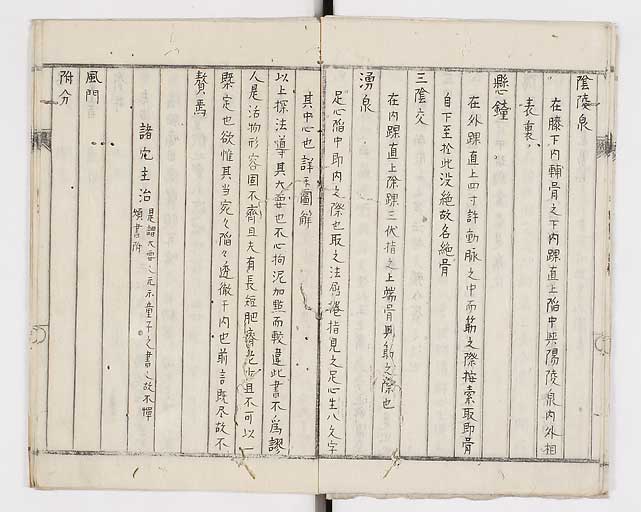 陰陵泉
在膝下內輔骨之下內踝直上陷中與陽陵泉內外相
表裏
懸鐘
在外踝直上四寸許動脉之中而筋之際按索取即骨
自下至於此沒絶故名絶骨
三陰交
在內踝直上除踝三伏指之上端骨與筋之際也
湧泉
足心陷中即內之際也取之法屈捲指見之足心生八文字
其中心也詳于圖解
以上探法導其大要也不心拘泥加㸃而較違此書不為謬
人是活物形容固不齊且夫有長短肥瘠老少且不可以一
槩定也欲惟其当宛々陷々透徹于內也前言既尽故不
贅焉
諸穴主治
是謂大要之元示童子之書之故不憚
煩書附
風門
附分